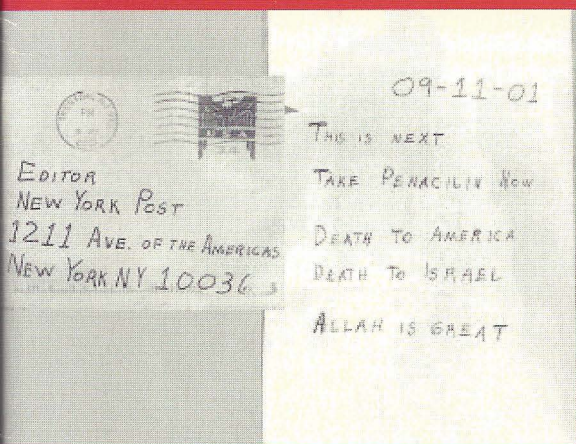 EDITOR
NEW YORK POST
1211 AVE. OF THE AMERICAS
NEW YORK NY 10036
09-11-01
THIS IS NEXT
TAKE PENACILIN NOW
DEATH TO AMERICA
DEATH TO ISRAEL
ALLAH IS GREAT